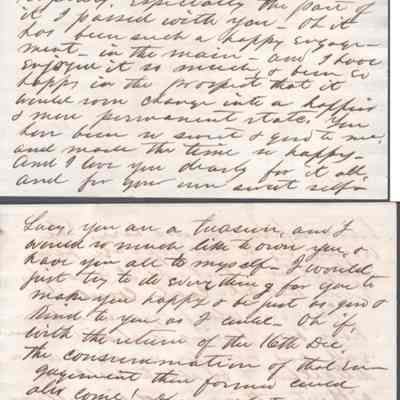 especially the part of
it I passed with you - Oh it
has been such a happy engage-
ment - in the main - and I have
enjoyed it so much, & been so
happy in the prospect that it
would soon change into a happier
& more permanent state. You
have been so sweet & good to me,
and made the time so happy -
And I love you dearly for it all -
and for your own sweet self -
Lucy, you are a treasure, and I
would so much like to own you, &
have you all to myself - I would
just try to do everything for you to
make you happy & be just as good &
kind to you as I could - Oh if,
with the return of the 16th Dec
the consummation of that en-
gagement then formed could
also come!